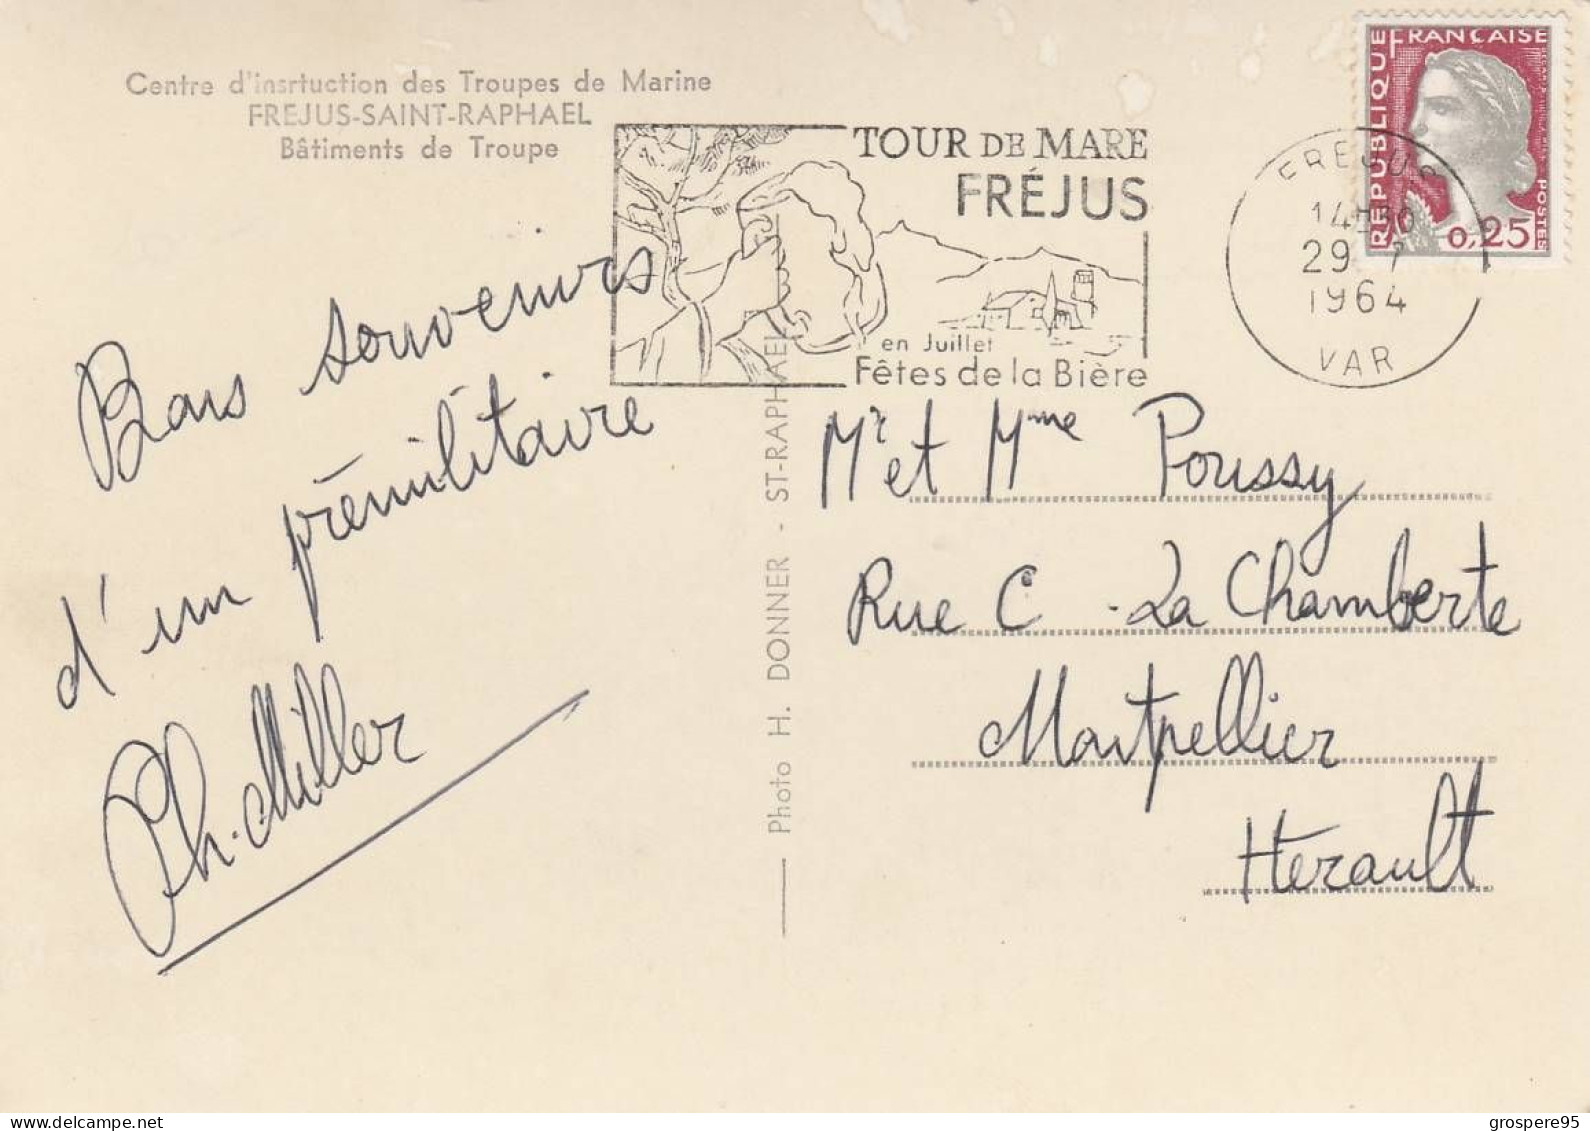 Centre d'insrtuction des Troupes de Marine
FREJUS-SAINT-RAPHAEL
Bâtiments de Troupe
TOUR DE MARE
FRÉJUS
en Juillet
Fêtes de la Bière
FREJUS
29 - 7
1964
VAR
REPUBLIQUE FRANÇAISE
POSTES
0,25
Bons souvenirs
d'un prémilitaire
Ph. Miller
Photo H. DONNER - ST-RAPHAEL
Mr et Mme Poussy
Rue C - La Chamberte
Montpellier
Hérault
grospere95